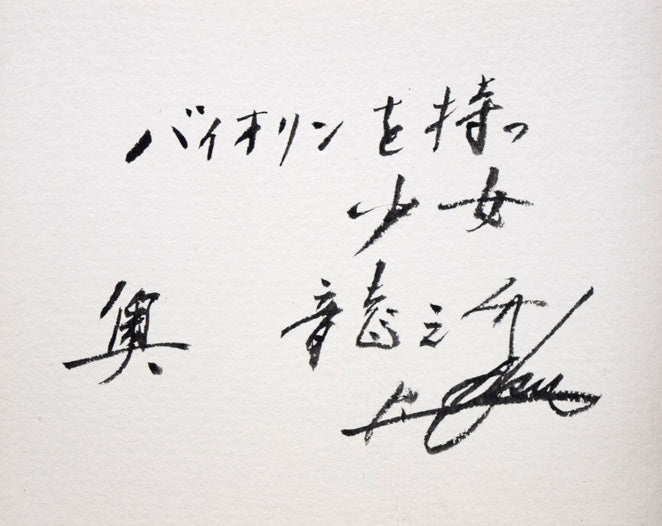 バイオリンを持つ
少女
奥 龍之介